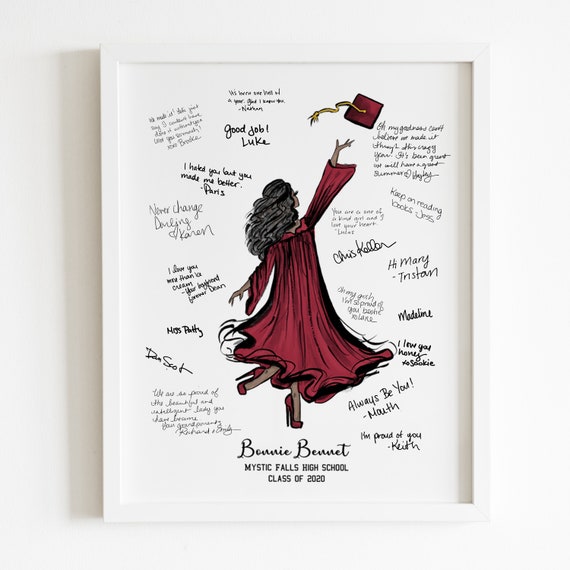 We made it! Folks just
say I couldn't have
done it without you
Love you seriously!
xoxo Brooke
It's been one hell of
a year. Glad I know you.
- Nathan
Good Job!
Luke
Oh my goodness can't
believe we made it
through this crazy
year. It's been great
we will have a great
Summer Hayley
I hated you but you
made me better.
- Paris
Keep on reading
books Jess
Never Change
Darling
Karen
You are a one of
a kind girl and I
love your heart.
- Lucas
Chris Keller
Hi Mary
- Tristan
I love you
more than ice
cream
- your boyfriend
forever Dean
Oh my gosh
I'm so proud of
you bestie
xo Lane
Madeline
Miss Patty
I love you
honey
xo Sookie
Dan Scott
Always Be You!
- Mouth
We are so proud of
the beautiful and
intelligent lady you
have become
Your grandparents
Richard & Emily
I'm proud of you
- Keith
Bonnie Bennet
MYSTIC FALLS HIGH SCHOOL
CLASS OF 2020